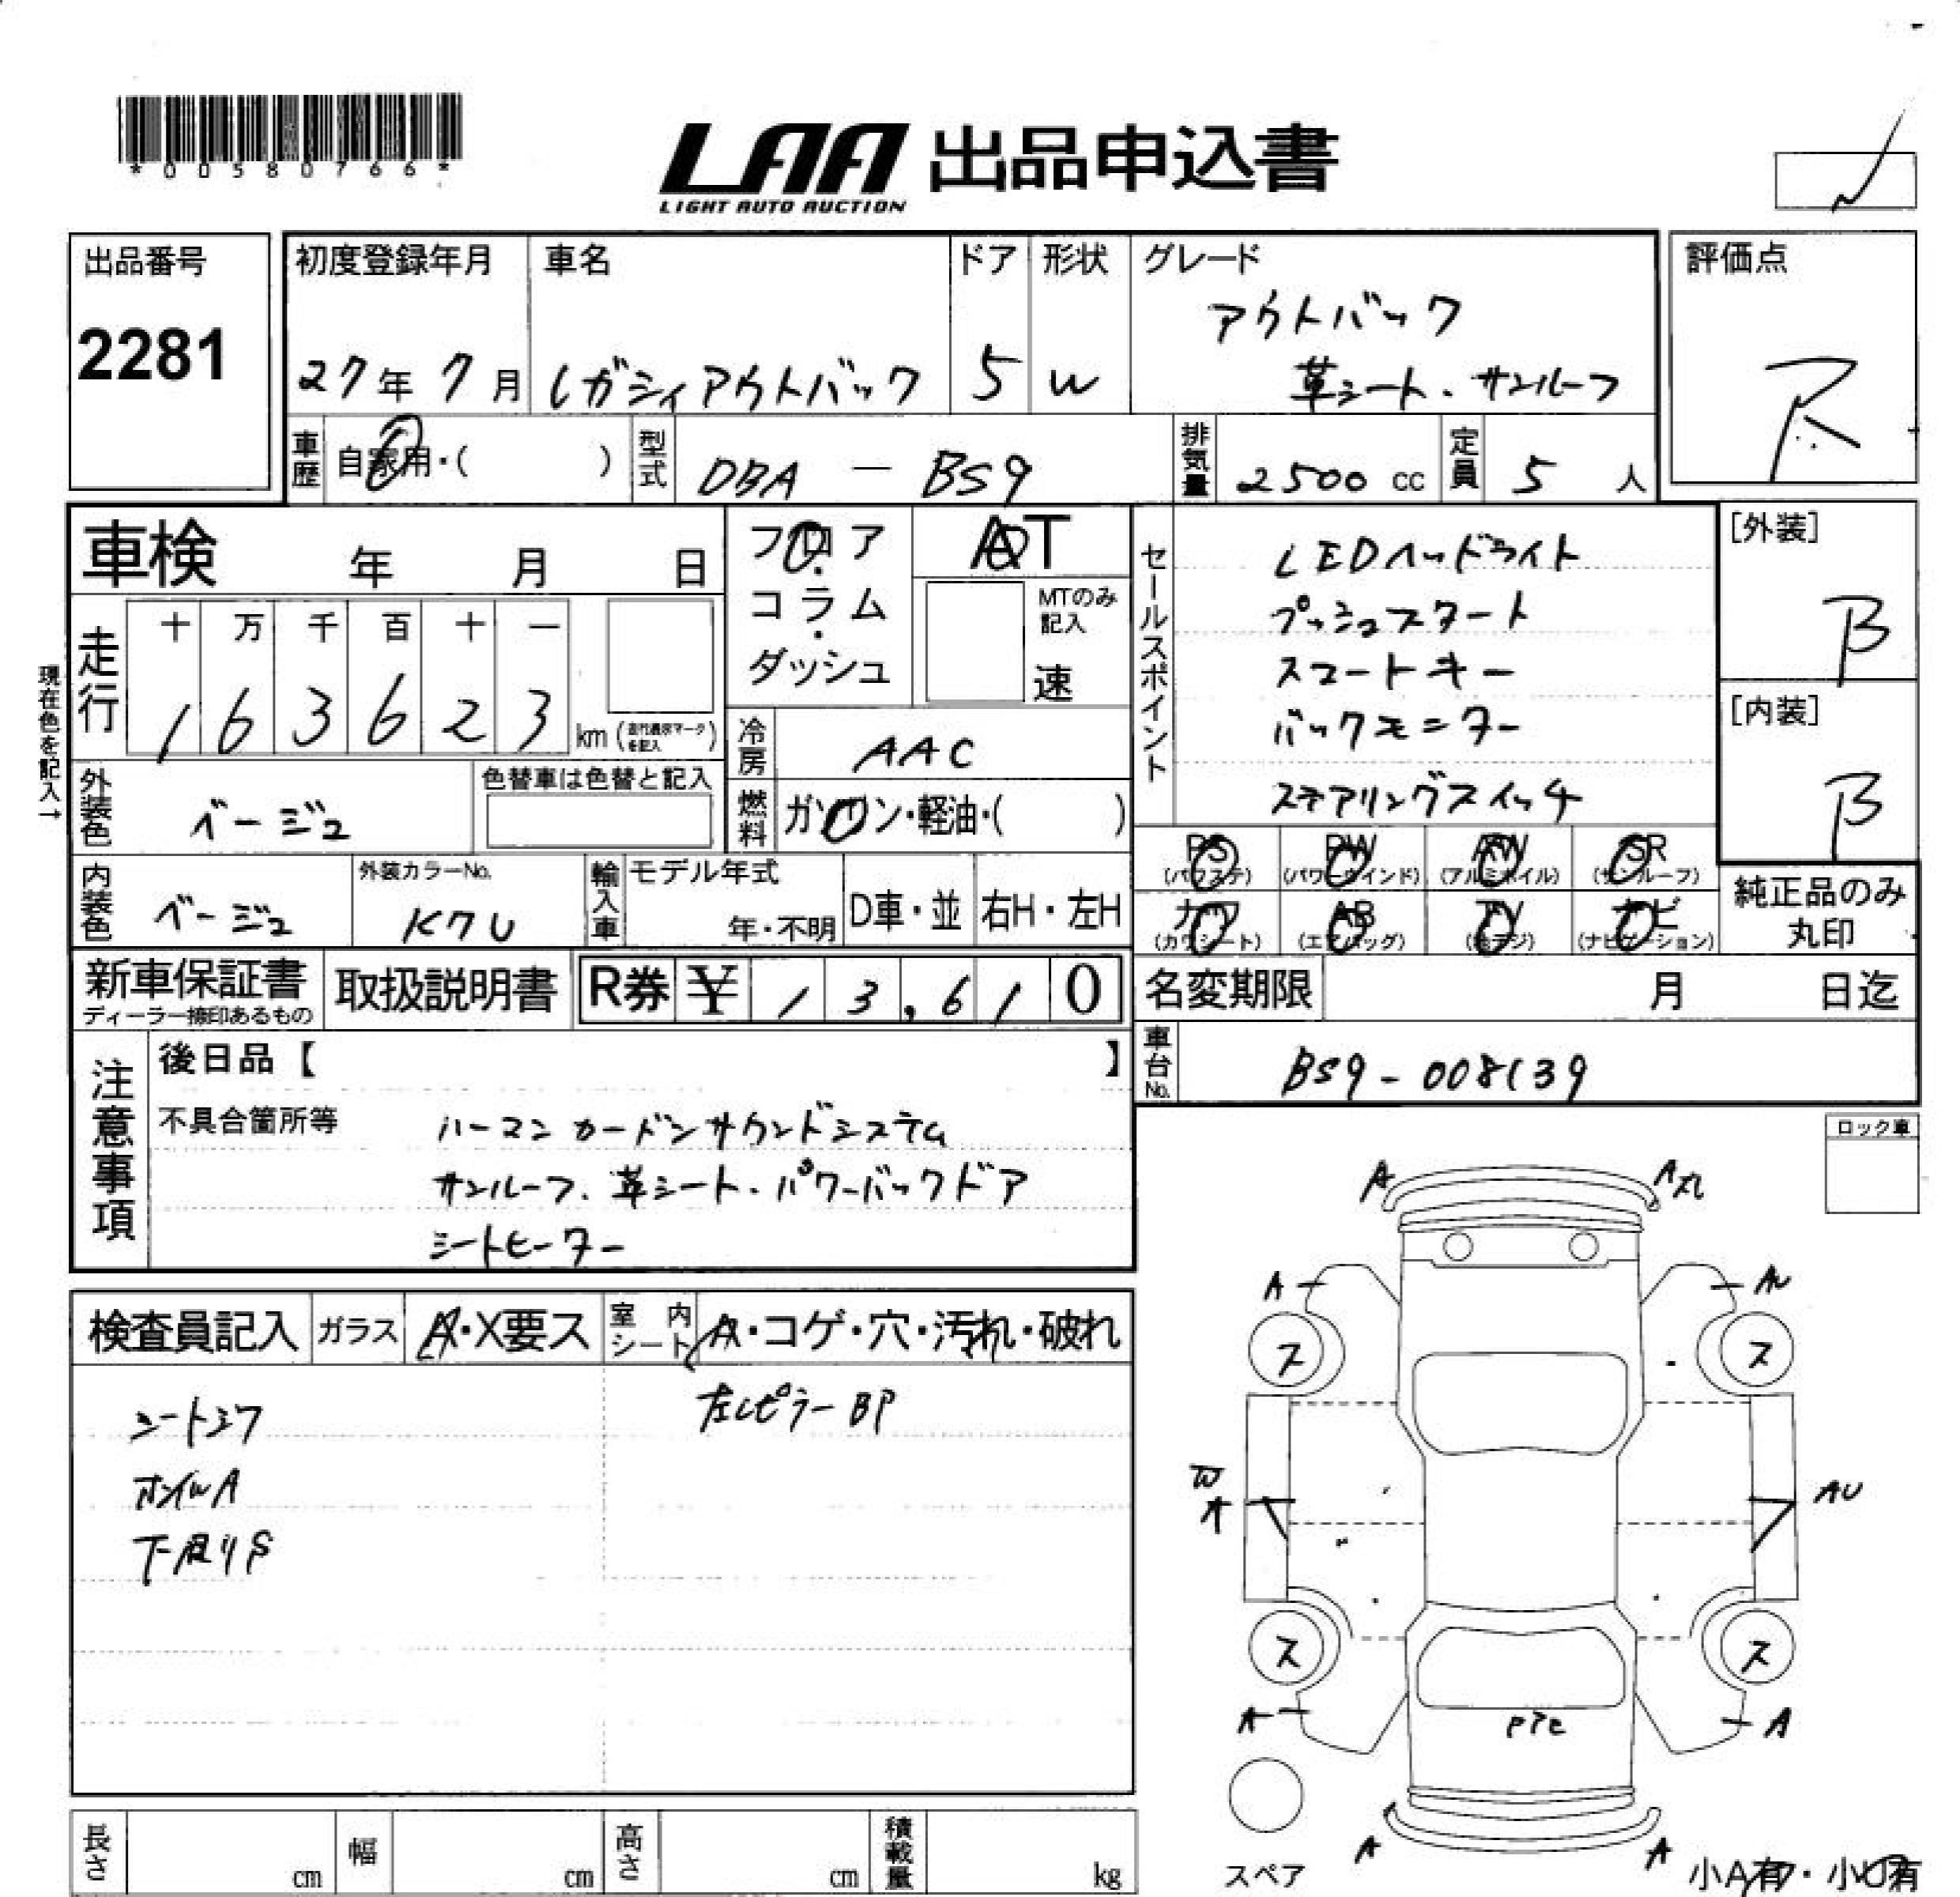 *00580766*
LAA 出品申込書
LIGHT AUTO AUCTION
出品番号
2281
初度登録年月
27年 7月
車名
レガシィアウトバック
ドア
5
形状
W
グレード
アウトバック
革シート.サンルーフ
評価点
R
車歴
自家用・( )
型式
DBA — BS9
排気量
2500 cc
定員
5 人
車検 年 月 日
フロア・コラム・ダッシュ
AT
MTのみ記入
速
セールスポイント
LEDヘッドライト
プッシュスタート
スマートキー
バックモニター
ステアリングスイッチ
[外装]
B
[内装]
B
現在色を記入→
走行
十 万 千 百 十 一
1 6 3 6 2 3 km
冷房
AAC
外装色
ベージュ
色替車は色替と記入
燃料
ガソリン・軽油・( )
内装色
ベージュ
外装カラーNo.
K7U
輸入車
モデル年式
年・不明
D車・並
右H・左H
PS (パワステ)
PW (パワーウインド)
AW (アルミホイル)
SR (サンルーフ)
カワ (カワシート)
AB (エアバッグ)
TV (地デジ)
ナビ (ナビゲーション)
純正品のみ
丸印
新車保証書
ディーラー捺印あるもの
取扱説明書
R券 ¥ 13,610
名変期限 月 日迄
車台No.
BS9-008139
注意事項
後日品【 】
不具合箇所等
ハーマンカードンサウンドシステム
サンルーフ.革シート.パワーバックドア
シートヒーター
ロック車
検査員記入
ガラス
A・X要ス
室内シート
A・コゲ・穴・汚れ・破れ
シートシワ
ホイルA
下周りS
左Cピラー BP
A
A
A
AU
ス
ス
W
A
AU
ス
ス
A
A
A
A
スペア
小A有・小U有
長さ cm
幅 cm
高さ cm
積載量 kg